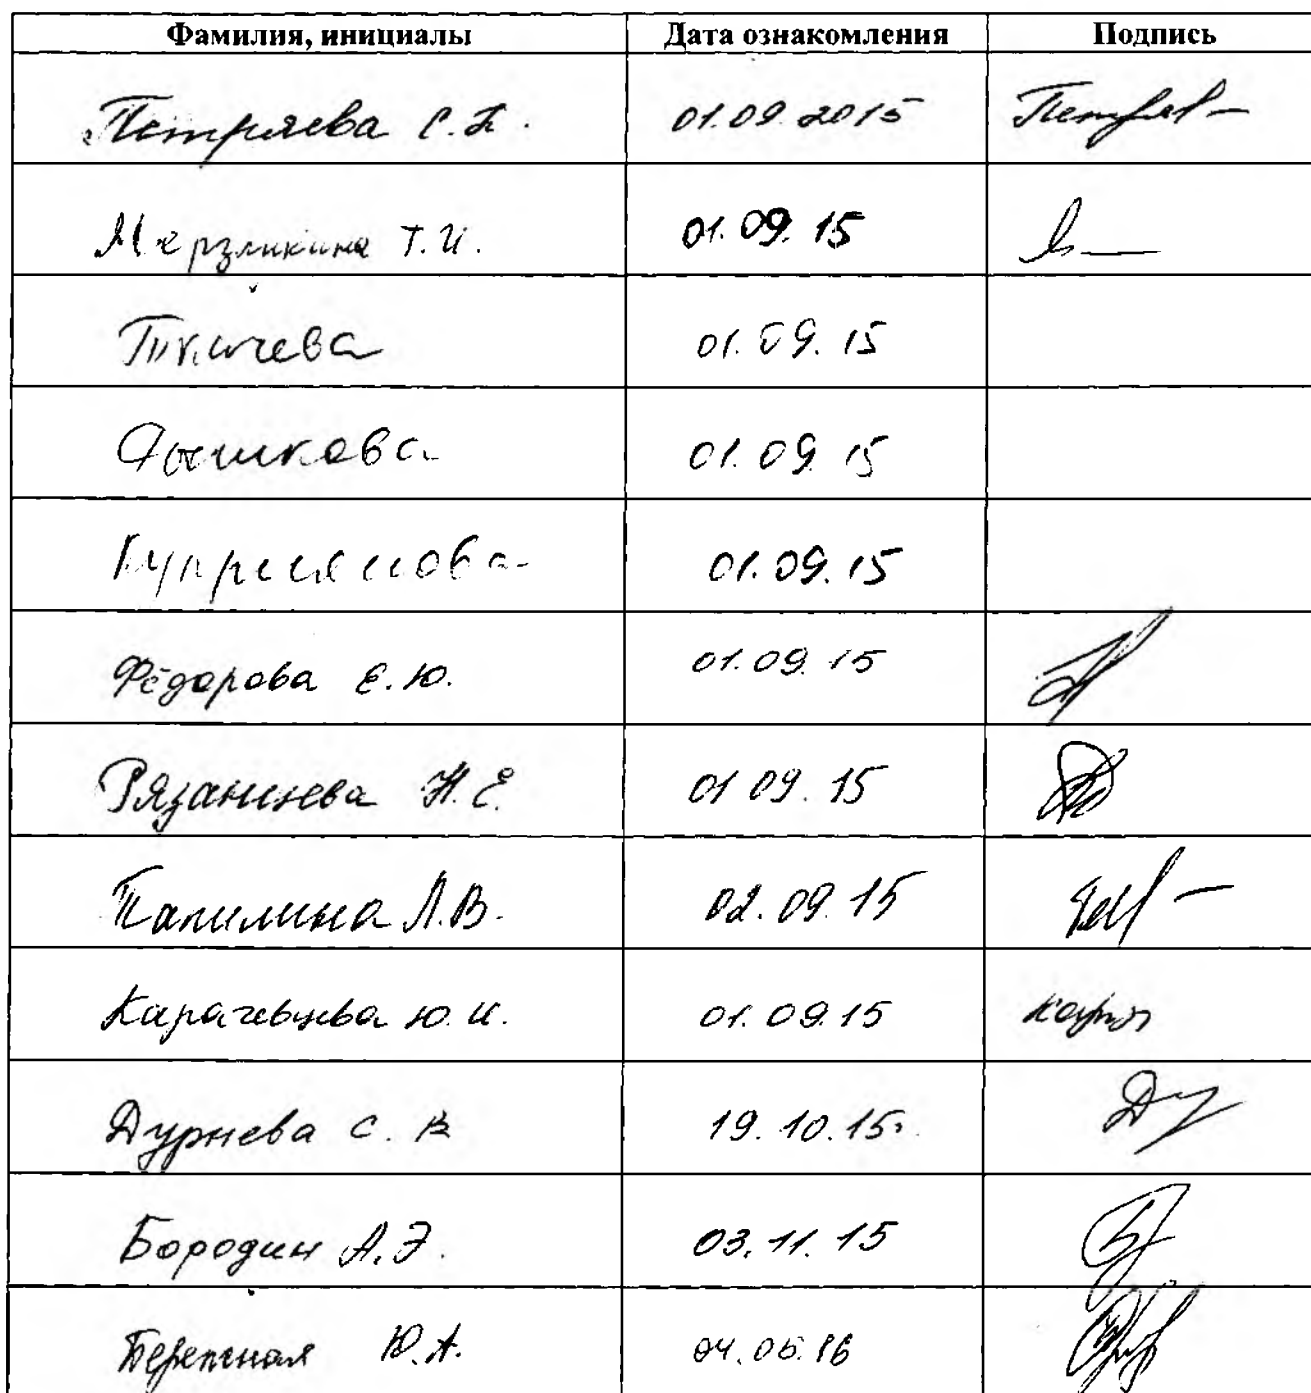 Фамилия, инициалы Дата ознакомления Подпись
Петряева С.П. 01.09.2015
Мерзликина Т.И. 01.09.15
Ткачева 01.09.15
01.09.15
Куприянова 01.09.15
Фёдорова Е.Ю. 01.09.15
Рязанцева Н.Е. 01 09.15
Папилина Л.В. 02.09.15
Карачевцева Ю.И. 01.09.15
Дурнева С.В 19.10.15.
Бородин А.Э. 03.11.15
Ю.А.